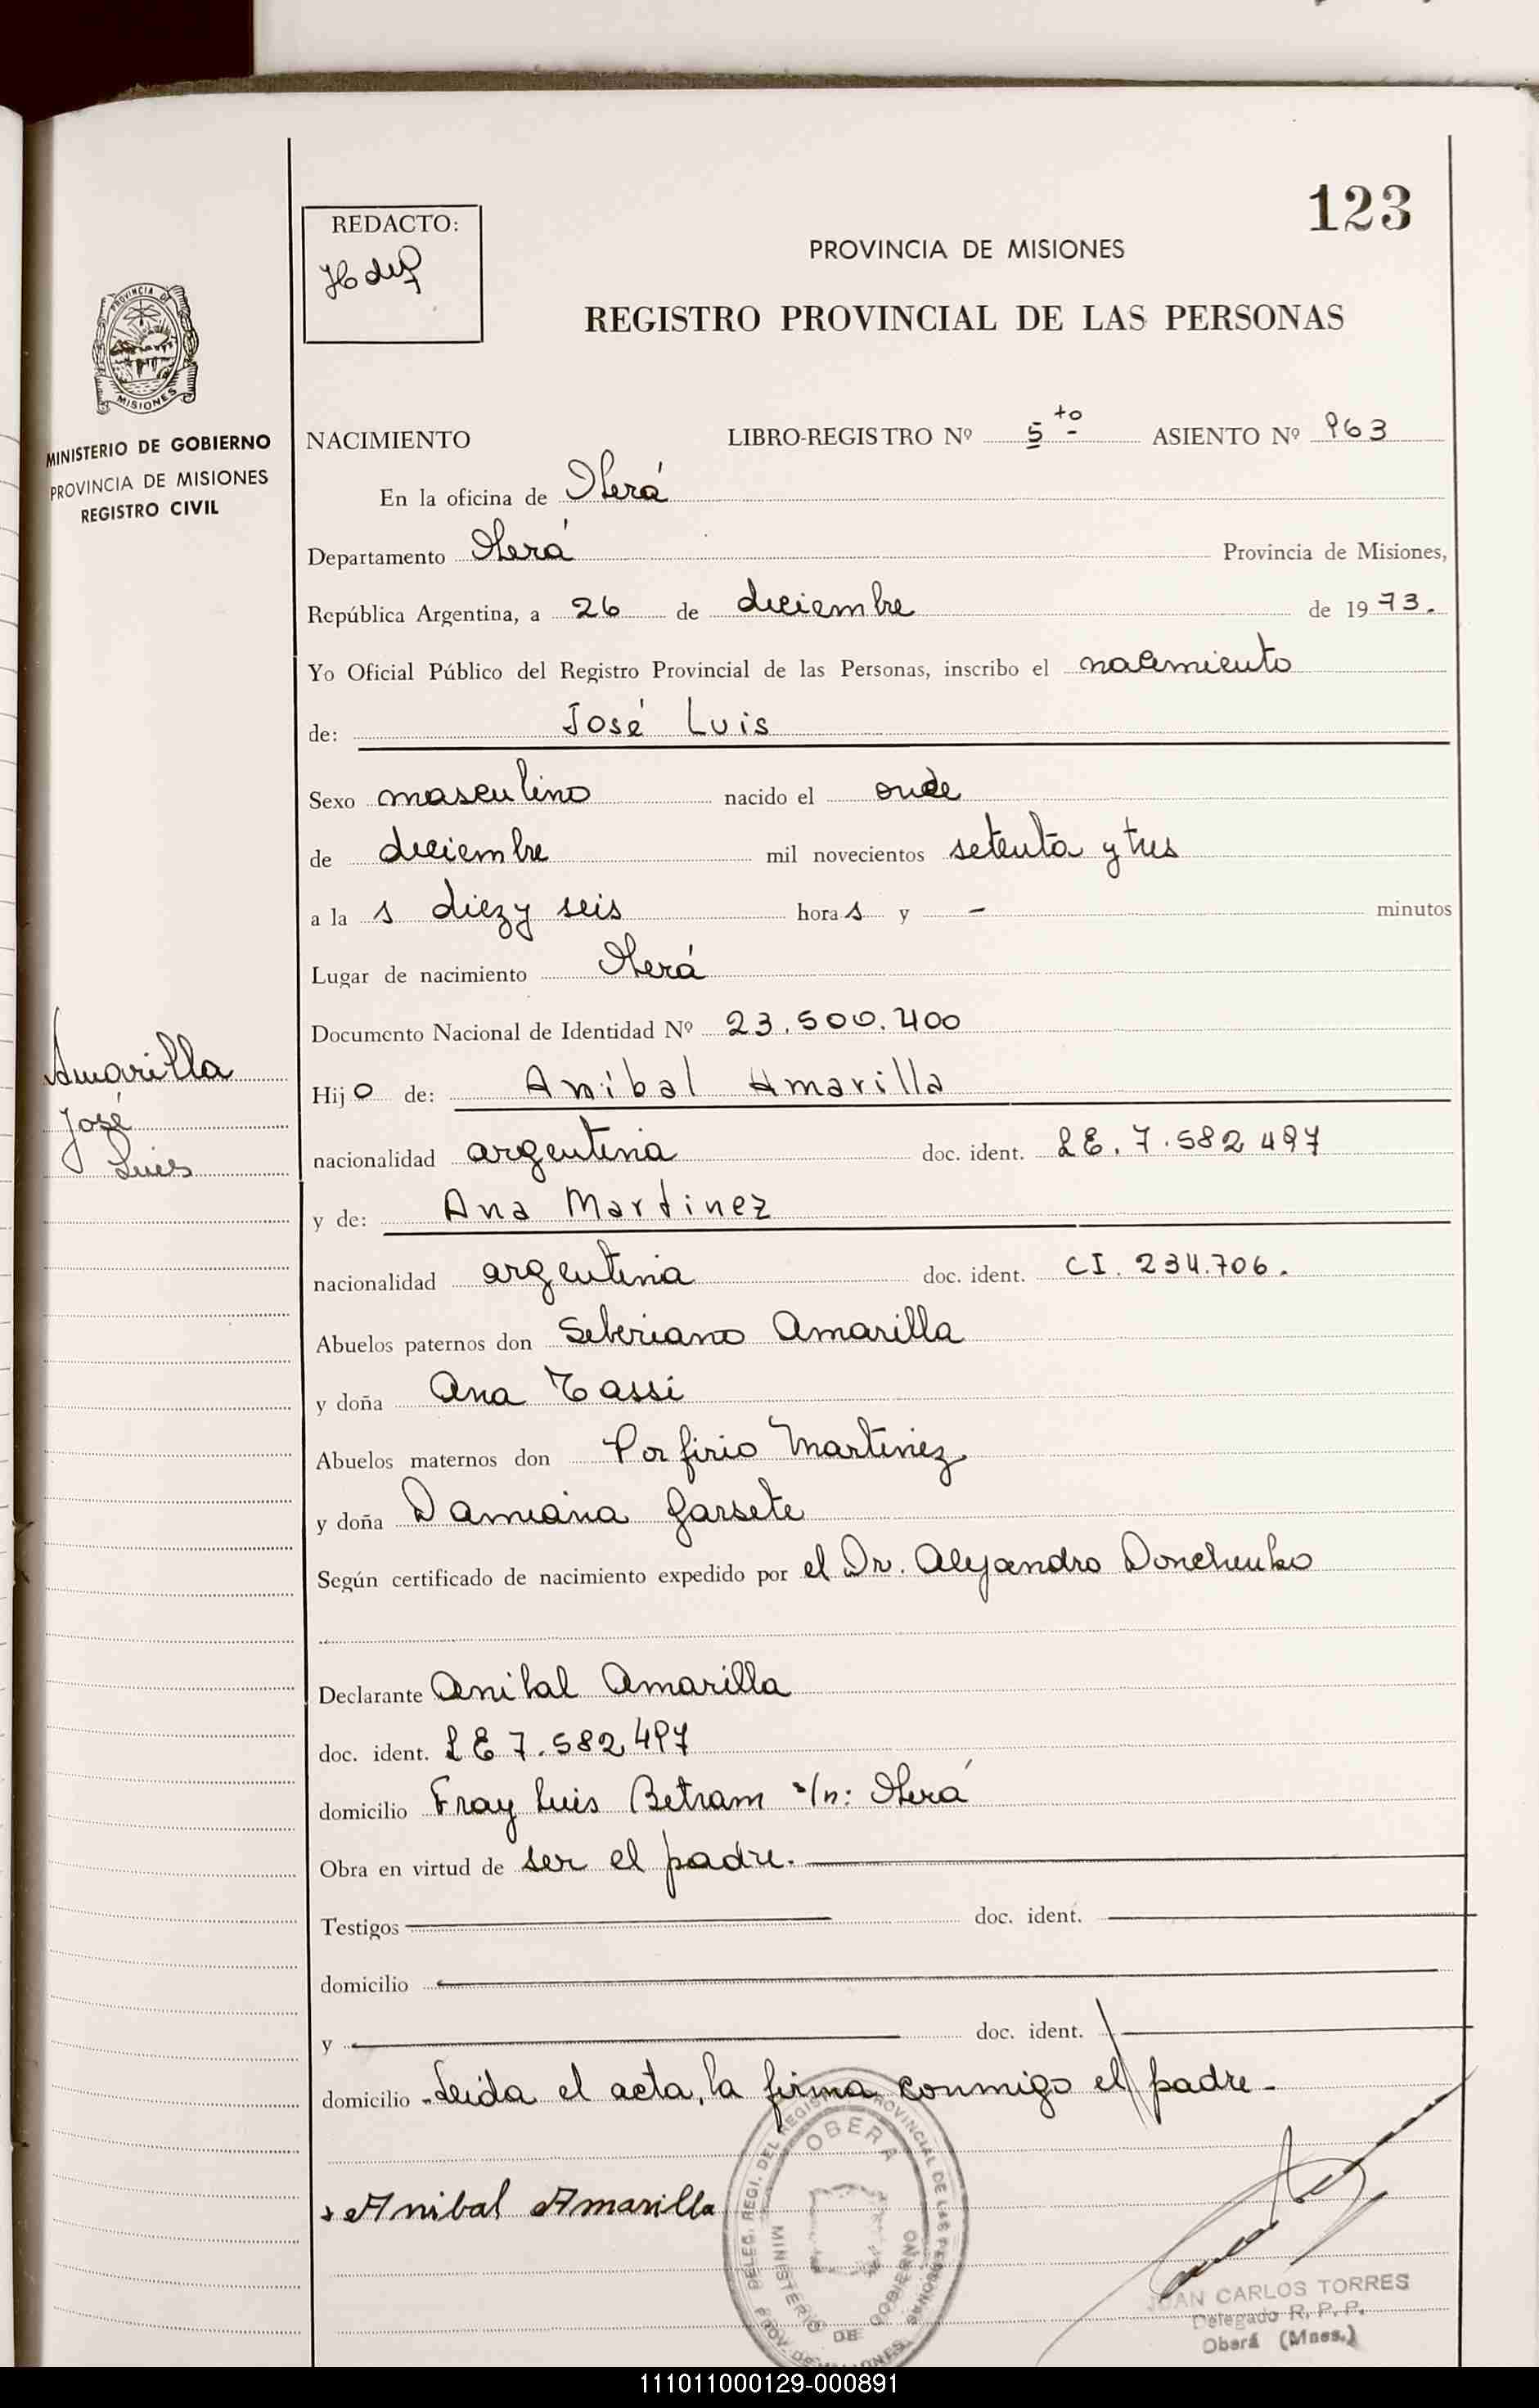 123
REDACTO:
PROVINCIA DE MISIONES
REGISTRO PROVINCIAL DE LAS PERSONAS
PROVINCIA DE
MISIONES
MINISTERIO DE GOBIERNO
PROVINCIA DE MISIONES
REGISTRO CIVIL
NACIMIENTO LIBRO-REGISTRO Nº 5to ASIENTO Nº 963
En la oficina de Oberá
Departamento Oberá Provincia de Misiones,
República Argentina, a 26 de diciembre de 1973.
Yo Oficial Público del Registro Provincial de las Personas, inscribo el nacimiento
de: José Luis
Sexo masculino nacido el once
de diciembre mil novecientos setenta y tres
a las diez y seis horas y - minutos
Lugar de nacimiento Oberá
Documento Nacional de Identidad Nº 23.500.400
Amarilla
José
Luis
Hijo de: Anibal Amarilla
nacionalidad argentina doc. ident. LE. 7.582 497
y de: Ana Martinez
nacionalidad argentina doc. ident. CI. 234.706.
Abuelos paternos don Seberiano Amarilla
y doña Ana Tassi
Abuelos maternos don Porfirio Martinez
y doña Damiana Garsete
Según certificado de nacimiento expedido por el Dr. Alejandro Donchenko
Declarante Anibal Amarilla
doc. ident. LE 7.582,497
domicilio Fray Luis Betram s/n: Oberá
Obra en virtud de ser el padre.
Testigos doc. ident.
domicilio
y doc. ident.
domicilio Leida el acta, la firma conmigo el padre -
Anibal Amarilla
DELEG. REGI. DEL REGISTRO PROVINCIAL DE LAS PERSONAS
OBERA
MINISTERIO DE GOBIERNO
PROV. DE MISIONES
JUAN CARLOS TORRES
Delegado R. P. P.
Oberá (Mnes.)
111011000129-000891